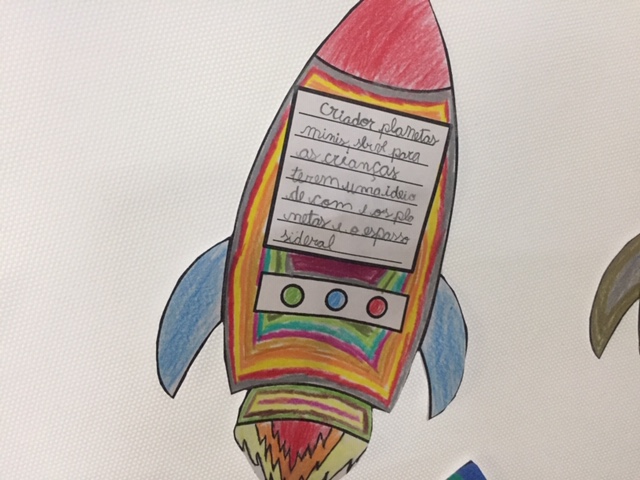 criador planetas
minis, para
as crianças
terem uma ideia
de com e os pla
netas e o espasso
sideral